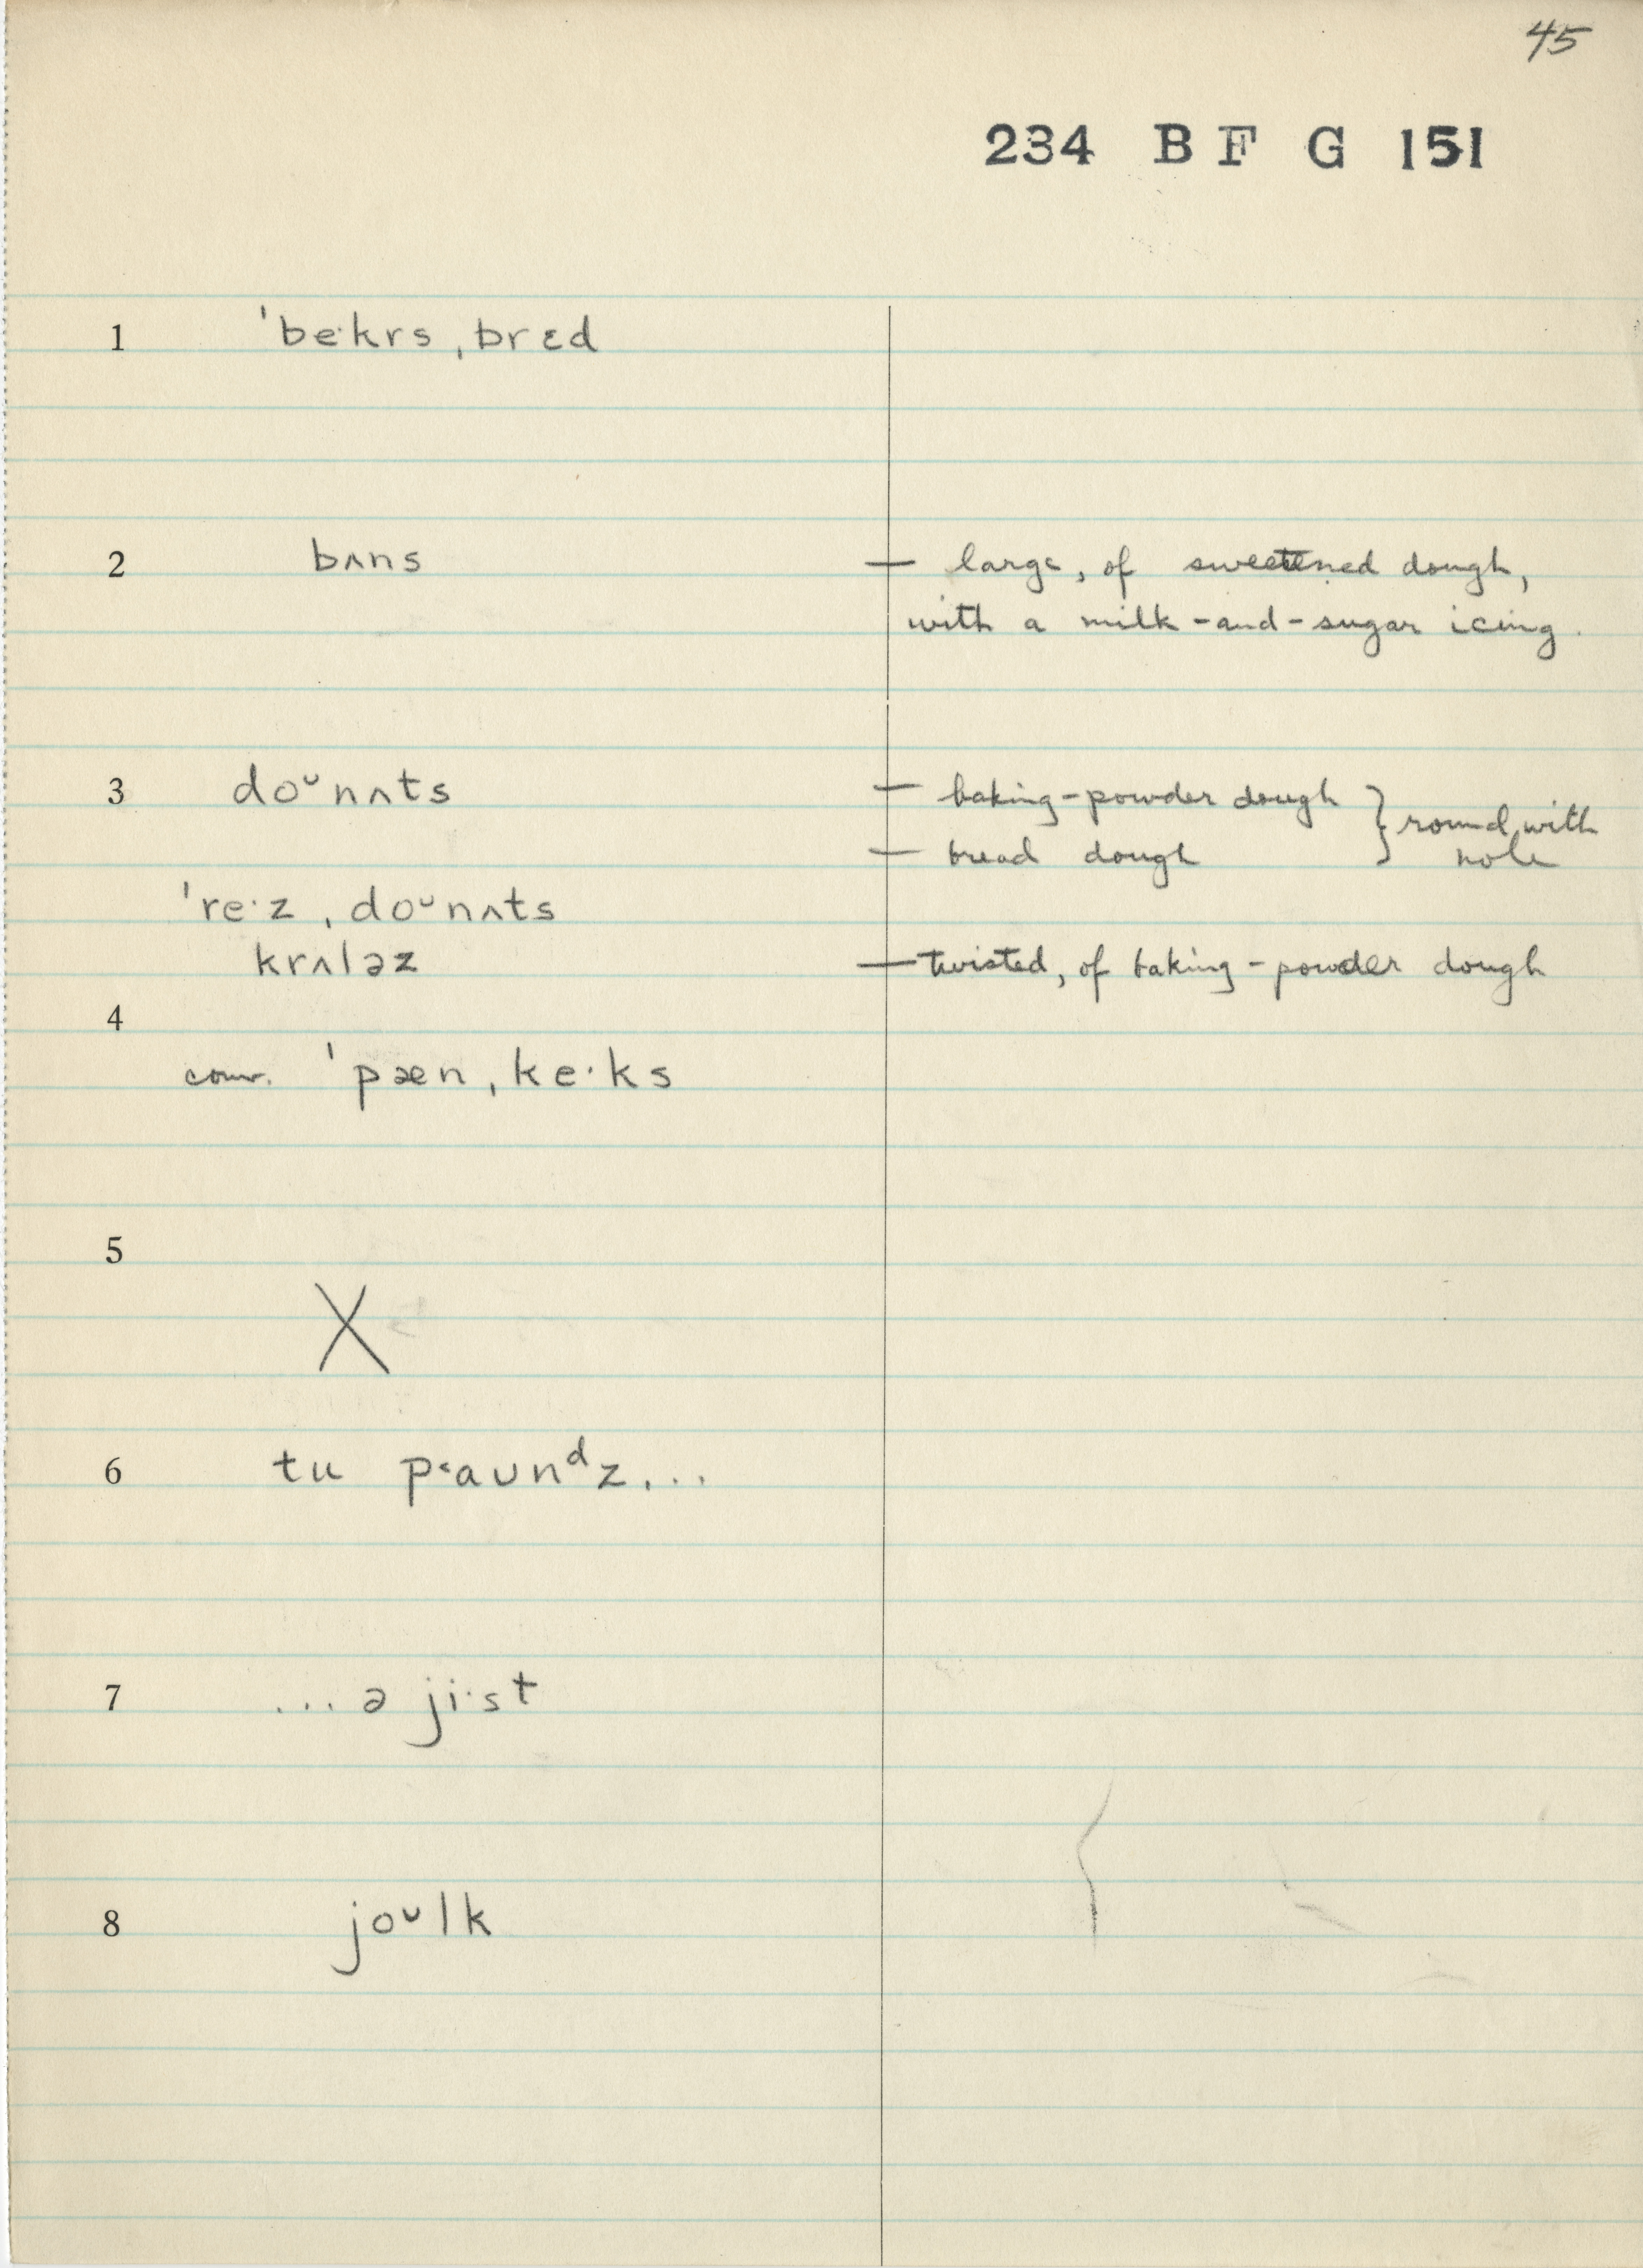 45
234 B F G 151
1 ˈbe·krs ˌbrɛd
2 bʌns — large, of sweetened dough,
with a milk-and-sugar icing.
3 doᵘnʌts — baking-powder dough } round, with
— bread dough hole
ˈre·z ˌdoᵘnʌts
krʌləz — twisted, of baking-powder dough
4
conv. ˈpæn ˌke·ks
5
X
6 tu pʻaʊnᵈz...
7 ...ə ji·st
8 joᵘlk